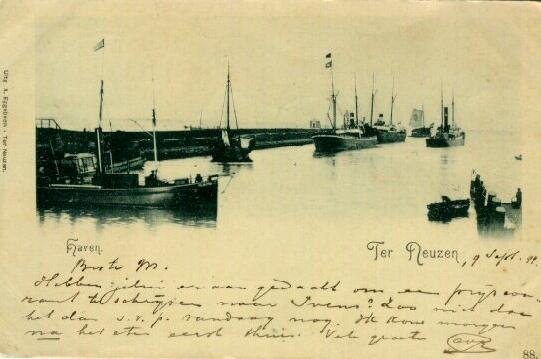 Uitg. A. Eggebeen - Ter Neuzen.
Haven.
Ter Neuzen, 9 Sept. 99
Hebben jelui er aan gedacht om een prijscou-
rant te schrijven naar Ivens? Zoo niet doe
het dan s.v.p. vandaag nog. Ik kom morgen
na het eten eerst thuis. Vele groeten
88.